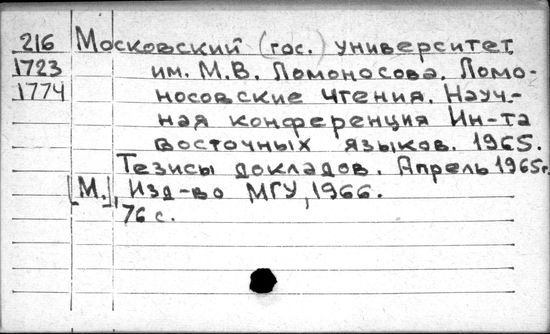 216 Московский (гос.) университет
1723 им. М.В. Ломоносова. Ломо-
1774 носовские чтения. Науч-
ная конференция Ин-та
восточных языков. 1965.
Тезисы докладов. Апрель 1965г.
[М.], Изд-во МГУ, 1966.
76 с.